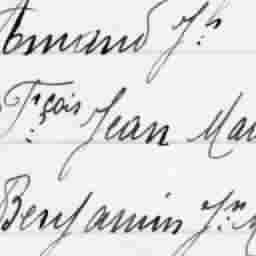 Armand Jh
Fçois Jean Mau
Benjamin Jn